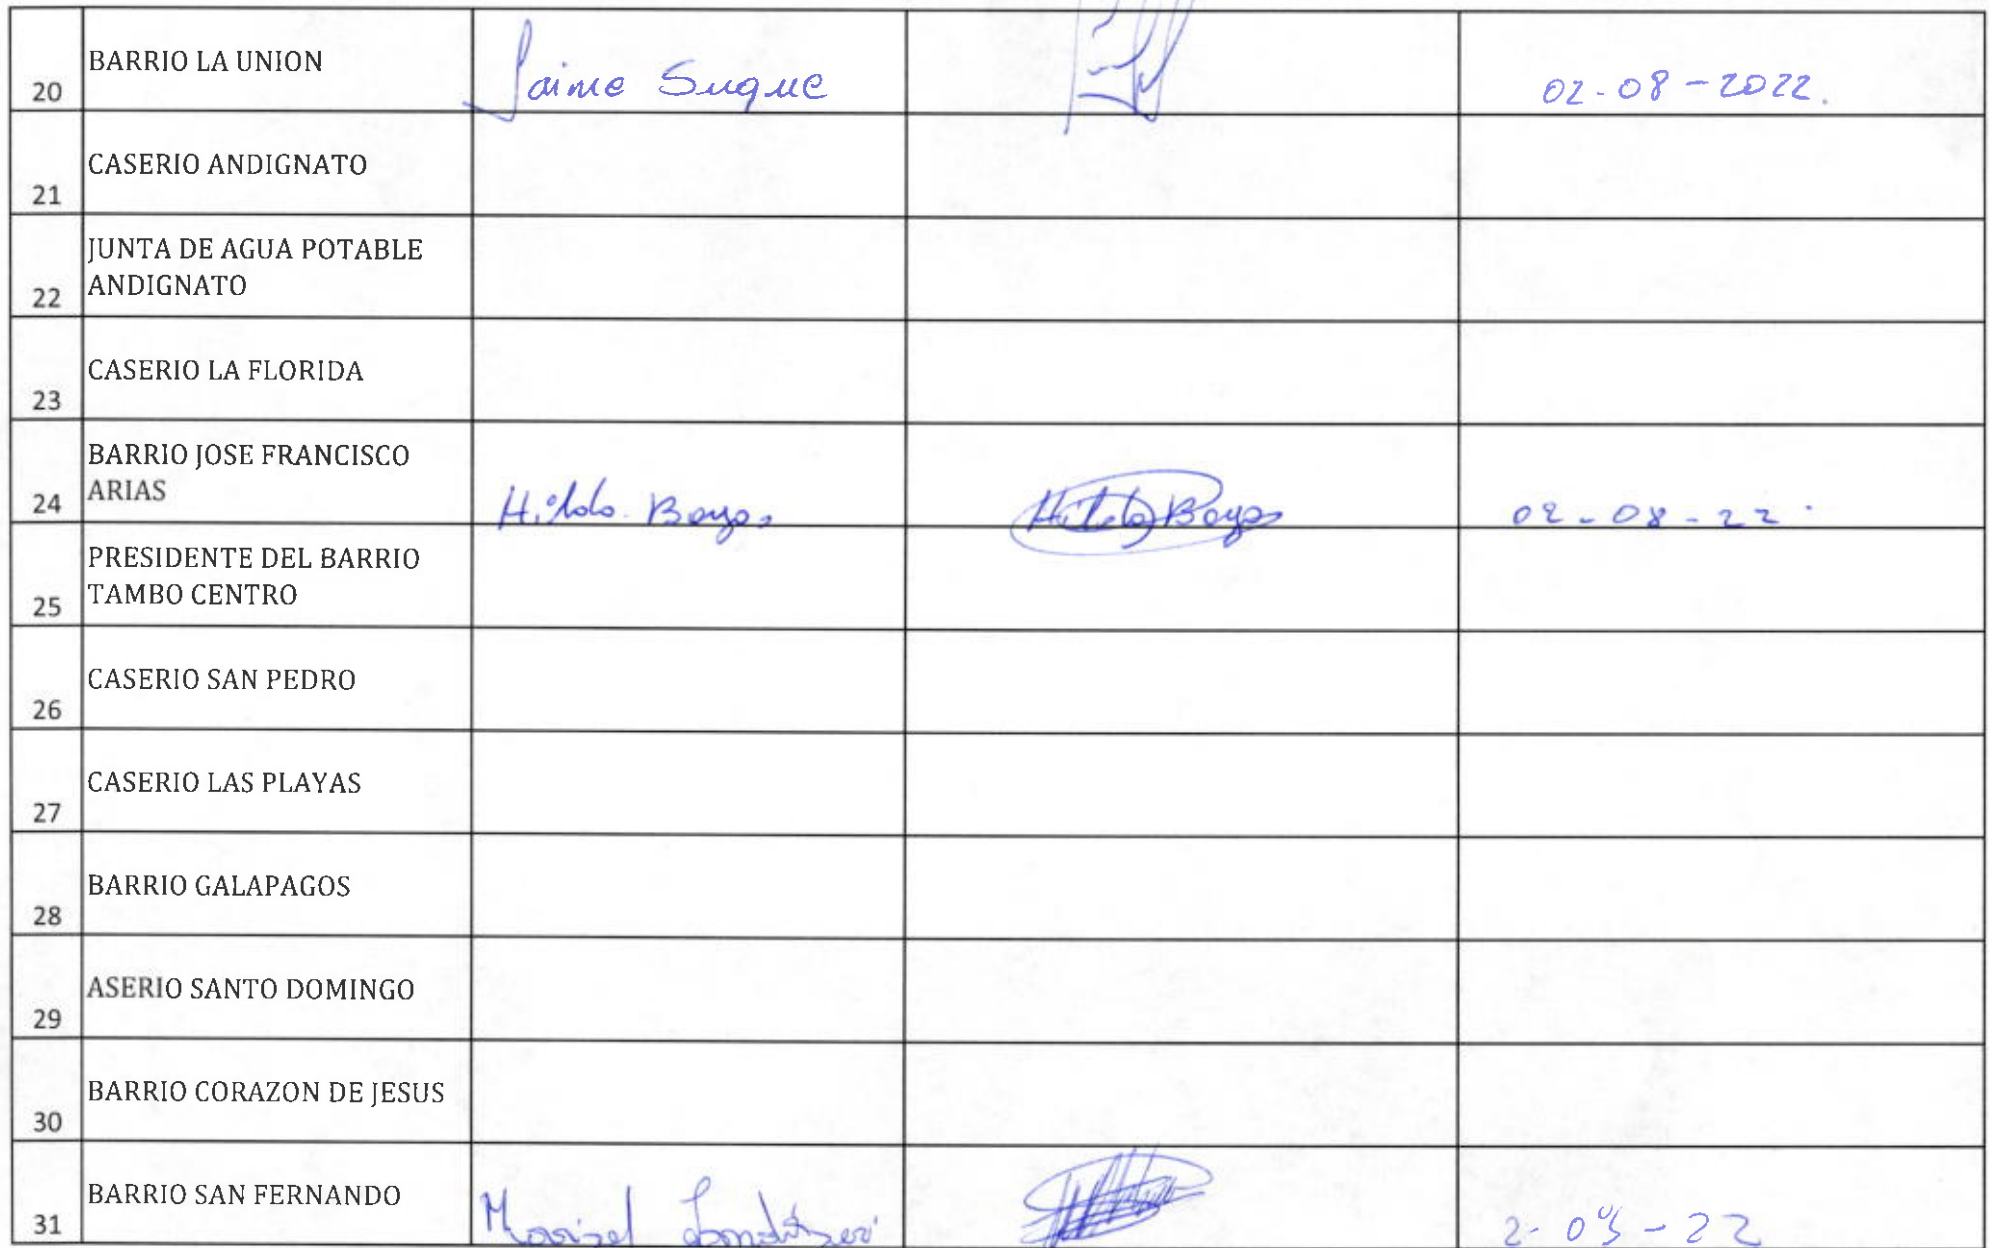 BARRIO LA UNION
20 Jaime Suque 02-08-2022.
CASERIO ANDIGNATO
21
JUNTA DE AGUA POTABLE
ANDIGNATO
22
CASERIO LA FLORIDA
23
BARRIO JOSE FRANCISCO
ARIAS
24 Hilda Bayas Hilda Bayas 02-08-22.
PRESIDENTE DEL BARRIO
TAMBO CENTRO
25
CASERIO SAN PEDRO
26
CASERIO LAS PLAYAS
27
BARRIO GALAPAGOS
28
ASERIO SANTO DOMINGO
29
BARRIO CORAZON DE JESUS
30
BARRIO SAN FERNANDO
31 Marisel